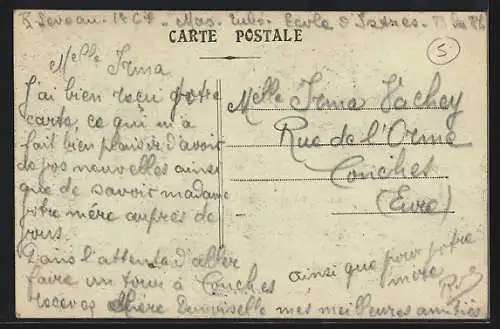 R. Leveau - 1e Cie - Mas. Entrée École d'Istres -
CARTE POSTALE
5
Melle Irma
J'ai bien reçu votre
carte, ce qui m'a
fait bien plaisir d'avoir
de vos nouvelles ainsi
que de savoir madame
votre mère auprès de
vous.
Dans l'attente d'aller
faire un tour à Conches
recevez chère Demoiselle mes meilleures amitiés
ainsi que pour votre
mère
Melle Irma Vachey
Rue de l'Orme
Conches
(Eure)